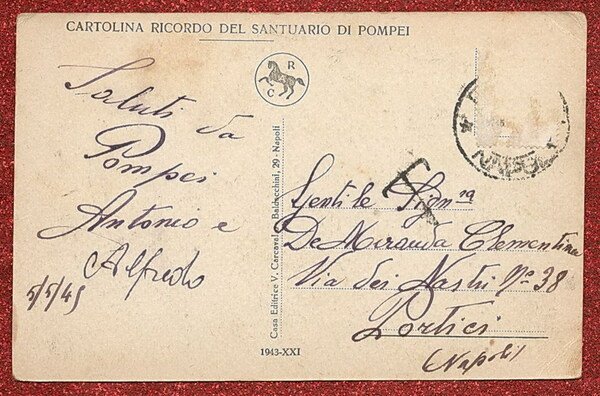 CARTOLINA RICORDO DEL SANTUARIO DI POMPEI
C R
Saluti da
Pompei
Antonio e
Alfredo
5/5/45
Casa Editrice V. Carcavallo Baldacchini, 29 - Napoli
1943-XXI
T
Gentile Sign.ra
De Miranda Clementina
Via dei Nastri Nº 38
Portici
(Napoli)